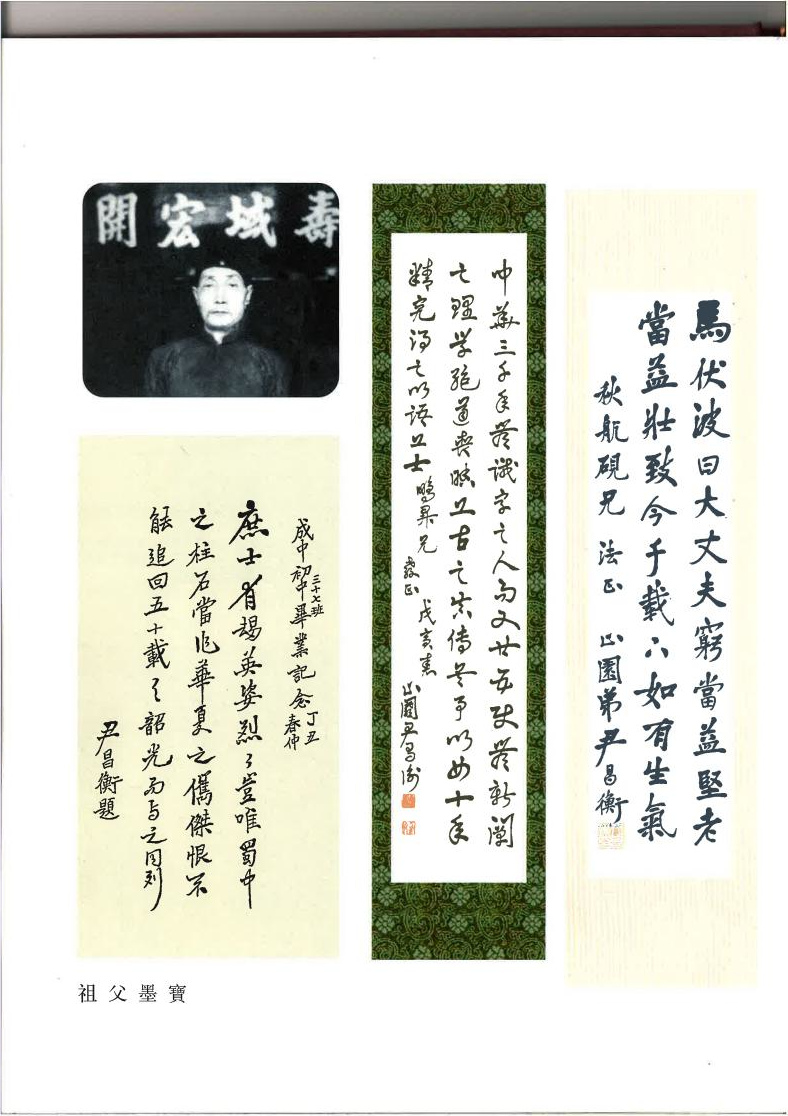 壽域宏開
馬伏波曰大丈夫窮當益堅老
當益壯致今千載下如有生氣
秋航硯兄 法正 止園弟尹昌衡
中華三千年無識字之人而又廿五史無新闡
之理学絕道喪昧上古之真傳無事以四十年
精究得之以語上士 鵬昇兄 教正 戊寅春 止園尹昌衡
成中初中三十七班畢業記念 丁丑春仲
庶士有朅英姿烈々豈唯蜀中
之柱石當作華夏之儁傑恨不
能追回五十載之韶光而与之同列
尹昌衡題
祖父墨寶